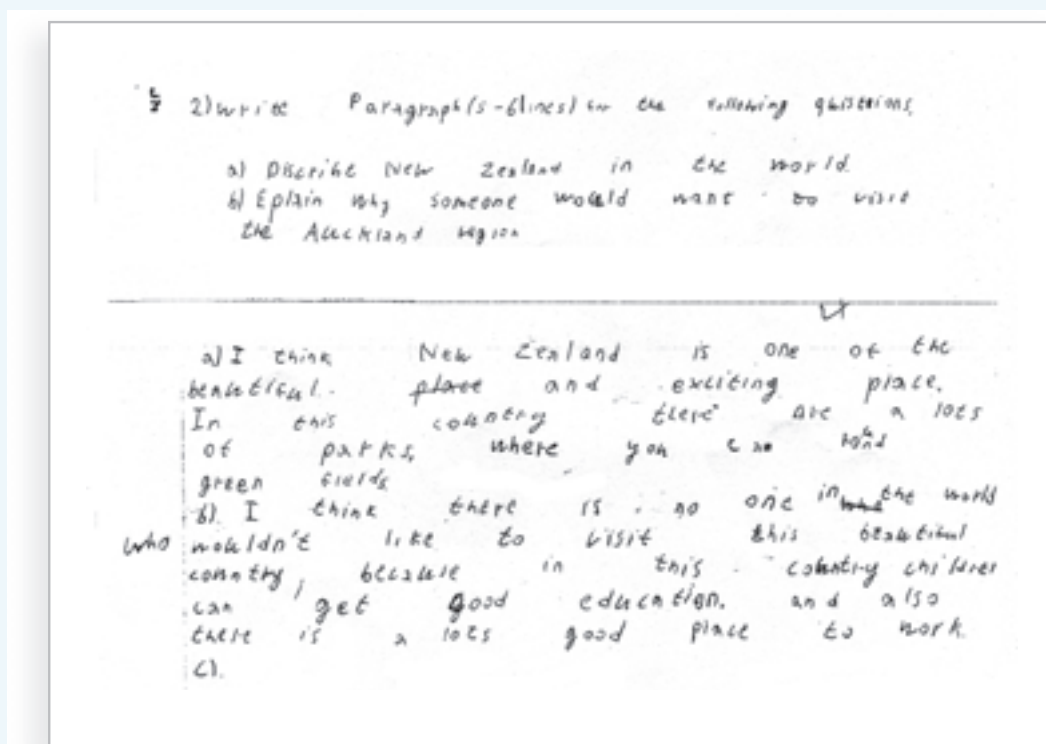 2) write Paragraph (5-6lines) for the following quistions,
a) Discribe New Zealand in the world.
b) Eplain why someone would want to visit
the Auckland region
a) I think New Zealand is one of the
beautiful. place and exciting place.
In this country there are a lots
of parks, where you can
green fields
b). I think there is no one in the world
who wouldn't like to visit this beautiful
country, because in this country children
can get good education. and also
there is a lots good place to work.
c).